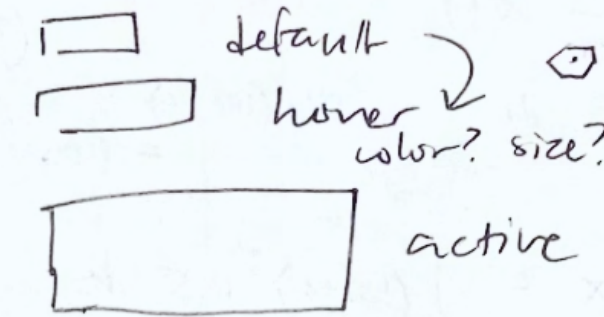 default
hover
color? size?
active